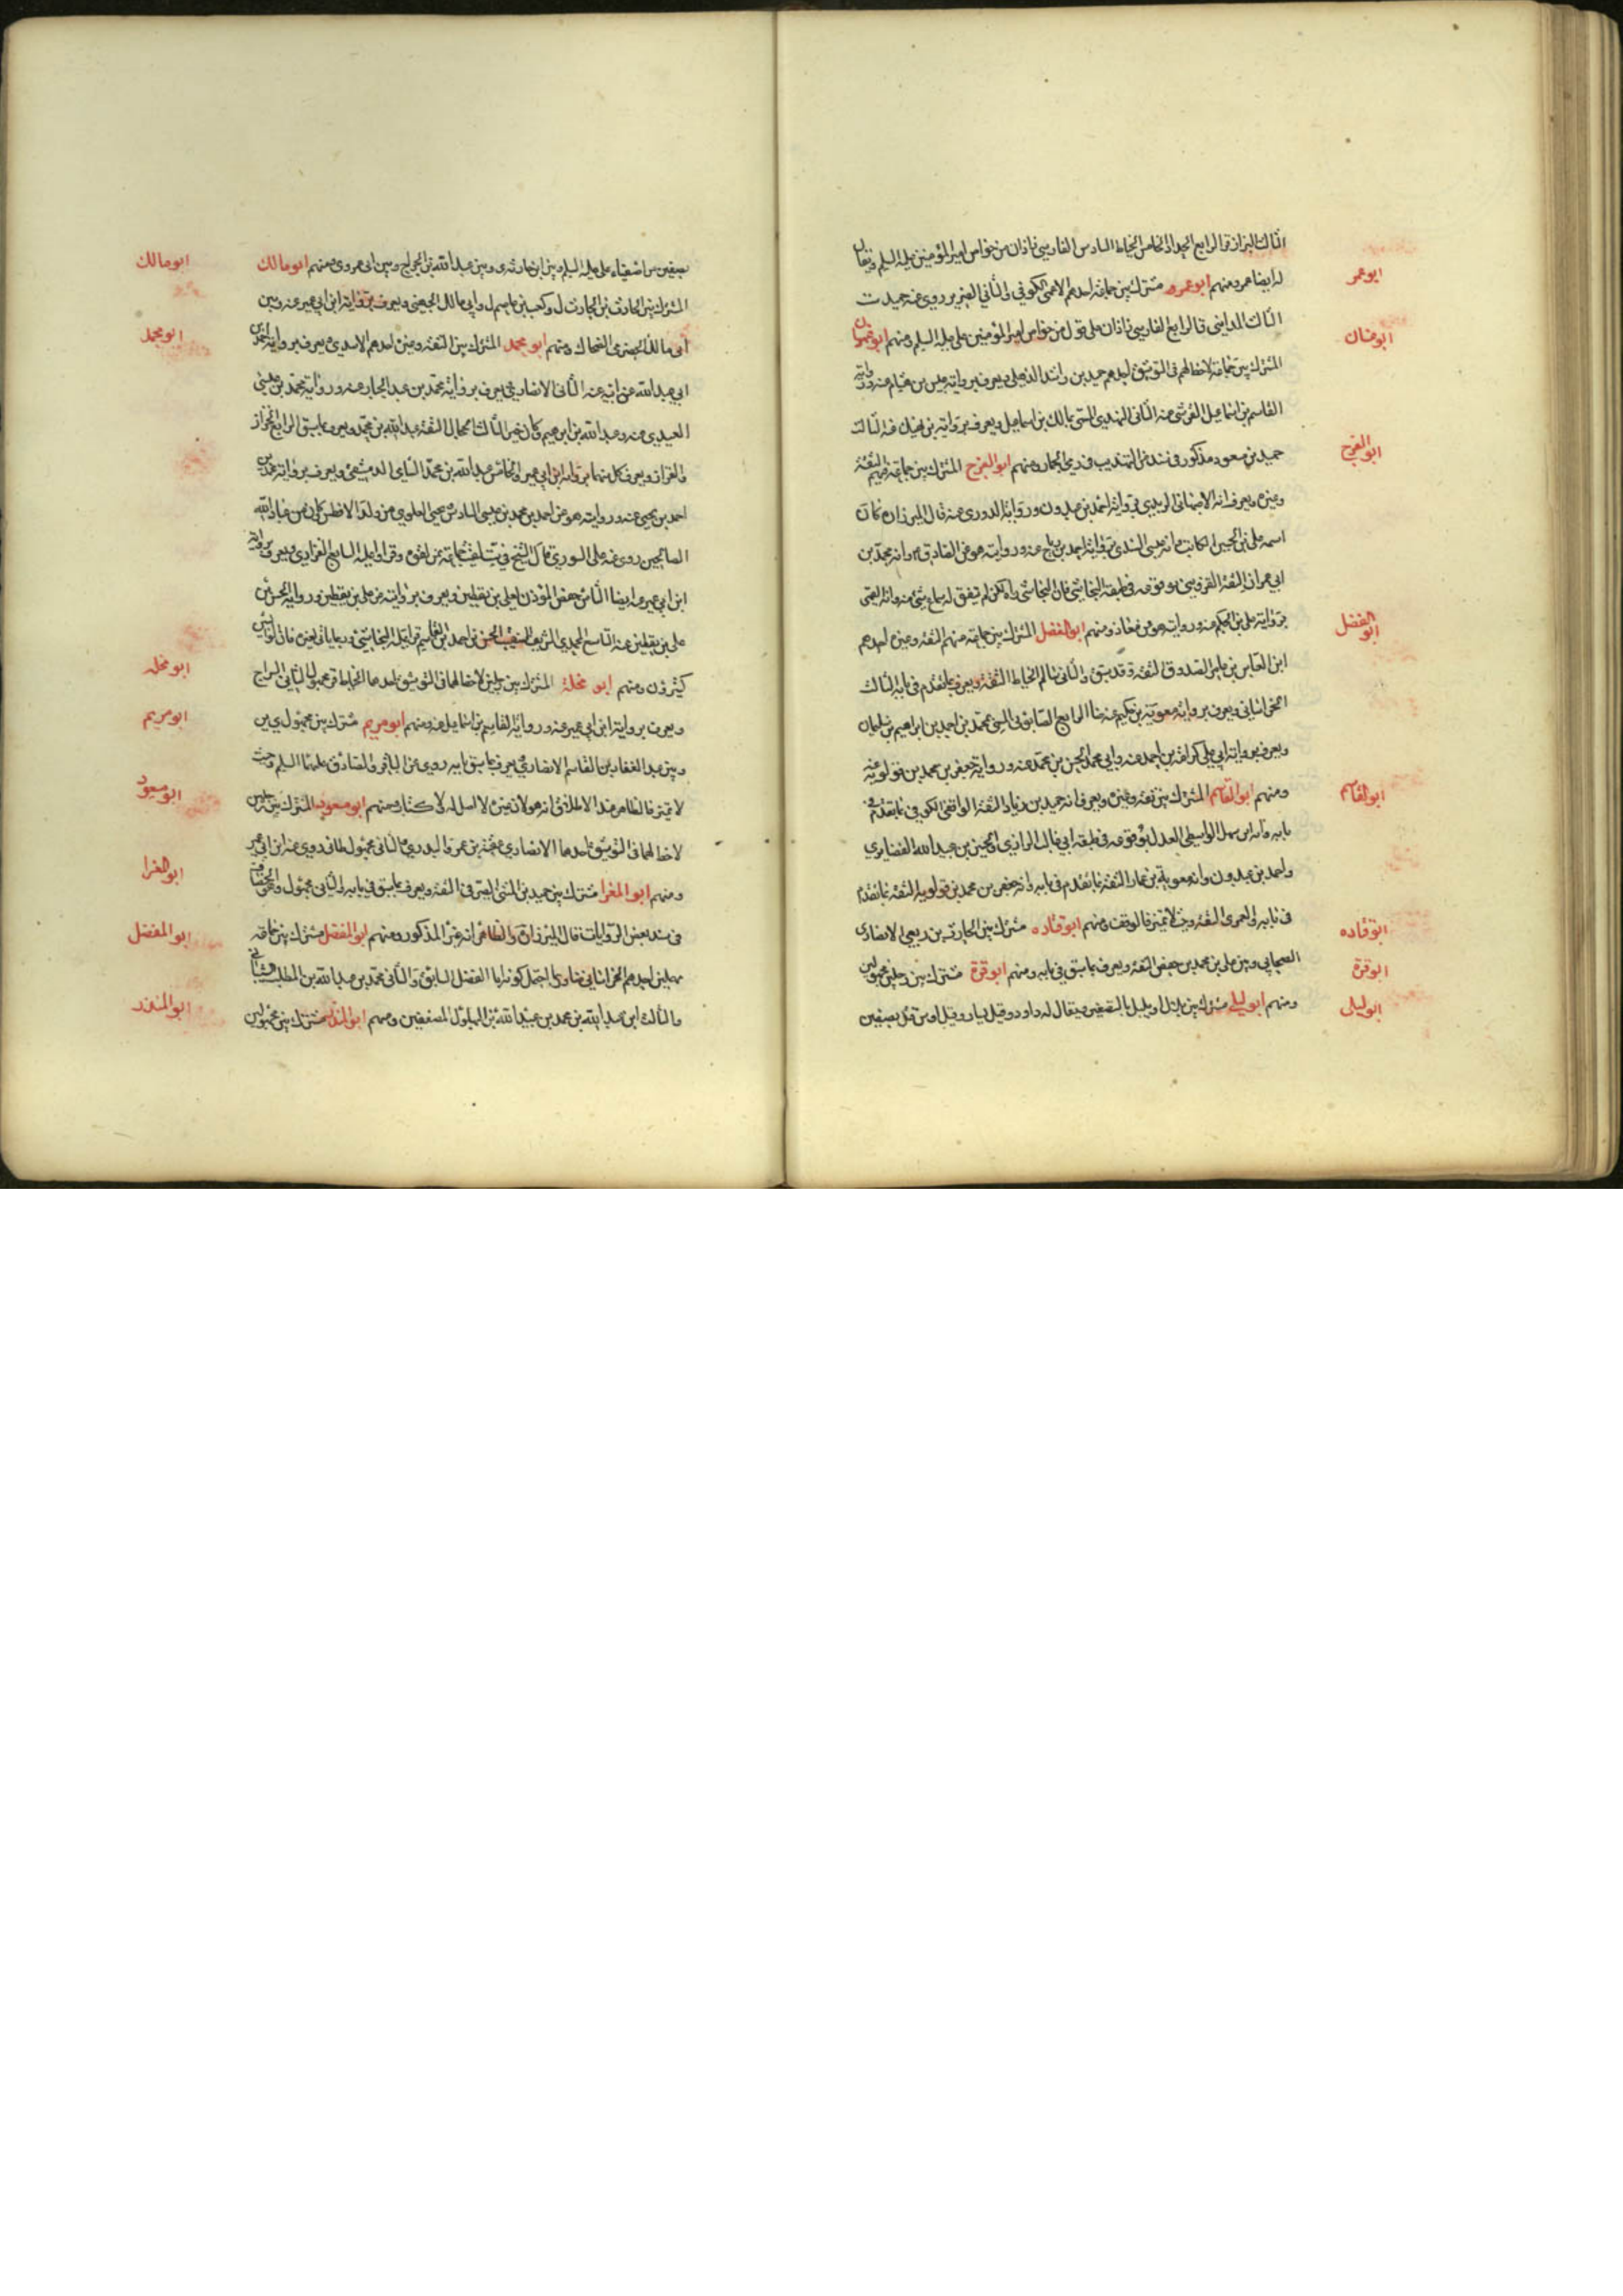 الثالث البزاز والرابع الحداد الخامس الخياط السادس الفارسي زاذان من خواص امير المؤمنين عليه السلم ويقال
ابوعمر
له ايضا عمر ومنهم ابو عمرو مشترك بين جماعة احدهم الاعمى الكوفي والثاني الضرير روى عنه حميد ث
الثالث المدايني والرابع الفارسي زاذان على قول من خواص امير المؤمنين على عليه السلم ومنهم ابوغسان
ابوغسان
المشترك بين جماعة لاحظ لهم في التوثيق احدهم حميد بن راشد الذهلي ويعرف برواية عبس بن هشام عنه ورواية
القاسم بن اسماعيل القرشي عنه الثاني النهدي المسمى بمالك بن اسماعيل ويعرف برواية بن نهيك عنه الثالث
حميد بن مسعود مذكور في سند من التهذيب في رمي الجمار ومنهم ابو الفرج المشترك بين جماعة منهم الثقة
ابوالفرج
وغيره ويعرف انه الاصفهاني الزيدي برواية احمد بن عبدون ورواية الدوري عنه قال الميرزا ره كان
اسمه على بن الحسين الكاتب وانه عيسى السندي برواية احمد بن رباح عنه وروايته هو عن الصادق ع وانه محمد بن
ابي عمران الثقة القزويني بوقوعه في طبقة النجاشي فان النجاشي راه لكن لم يتفق له سماع شئ منه وانه القمي
برواية على بن الحكم عنه وروايته هو عن معاذ ومنهم ابوالفضل المشترك بين جماعة منهم الثقة وغيره احدهم
ابوالفضل
ابن العباس بن عامر الصدوق الثقة وقد سبق والثاني سالم الحناط الثقة ويعرف بما تقدم في بابه الثالث
الخراساني ويعرف برواية معوية بن حكيم عنه هنا الرابع الصابوني المسمى محمد بن احمد بن ابراهيم بن سليمان
ويعرف برواية ابي على كرامة بن احمد عنه وابي محمد الحسن بن محمد عنه ورواية جعفر بن محمد بن قولويه عنه
ومنهم ابوالقاسم المشترك بين ثقة وغيره ويعرف انه حميد بن زياد الثقة الواقفي الكوفي بما تقدم في
ابوالقاسم
بابه وانه ابن سهل الواسطي العدل بوقوعه في طبقة ابي غالب الرازي الحسين بن عبيد الله الغضايري
واحمد بن عبدون وانه معوية بن عمار الثقة بما تقدم في بابه وانه جعفر بن محمد بن قولويه الثقة بما تقدم
في بابه والعمري الثقة وحيث لا تميز فالوقف ومنهم ابوقتاده مشترك بين الحارث بن ربعي الانصاري
ابوقتاده
الصحابي وبين على بن محمد بن حفص الثقة ويعرف بما سبق في بابه ومنهم ابوقرة مشترك بين رجلين مجهولين
ابوقرة
ومنهم ابوليلى مشترك بين بلال او بليل بالتصغير ويقال له داود وقيل يسار وقيل اوس قتل بصفين
ابوليلى
بصفين من اصفياء على عليه السلم وبين ابن حارثه ي وبين عبد الله بن الجراح وبين ابي عمر وي ومنهم ابومالك
ابومالك
المشترك بين الحارث بن الحارث ل وكعب بن عاصم ل وابي مالك الجهني ويعرف برواية ابن ابي عمير عنه وبين
ابي مالك الحضرمي الضحاك ومنهم ابو محمد المشترك بين الثقة وغيره احدهم الاسدي ويعرف برواية احمد بن
ابومحمد
ابي عبد الله عن ابيه عنه الثاني الانصاري ويعرف برواية محمد بن عبد الجبار عنه ورواية محمد بن عيسى
العبيدي عنه وعبد الله بن ابرهيم وكان خيرا الثالث الحجال الثقة عبد الله بن محمد ويعرف بما سبق الرابع الخزاز
والقزاز ويعرف كل منهما برواية ابن ابي عمير والخامس عبد الله بن محمد الشامي الدمشقي ويعرف برواية محمد بن
احمد بن يحيى عنه وروايته هو عن احمد بن محمد بن عيسى السادس يحيى العلوي من ولد الافطس كان من عباد الله
الصالحين روى عنه على السوري قال الشيخ في ست لقيت جماعة ممن لقوه وقراوا عليه السابع الفزاري ويعرف برواية
ابن ابي عمير عنه ايضا الثامن جعفر المؤذن لعلى بن يقطين ويعرف بروايته عن على بن يقطين ورواية الحسن بن
على بن يقطين عنه التاسع المحمدي الشريف النقيب الحسن بن احمد بن القاسم قرا عليه النجاشي وربما ياتي لغيره فان المكنيين
كثيرون ومنهم ابو مخلد المشترك بين رجلين لاحظ لهما في التوثيق احدهما الخياط ق مجهول الثاني السراج
ابومخلد
ويعرف برواية ابن ابي عمير عنه ورواية القاسم بن اسماعيل عنه ومنهم ابومريم مشترك بين مجهول ي ين
ابومريم
وبين عبد الغفار بن القاسم الانصاري ويعرف بما سبق بابه روى عن الباقر والصادق عليهما السلم وحيث
لا تميز فالظاهر عند الاطلاق انه هو لان غيره لا اصل له ولا كتاب ومنهم ابومسعود المشترك بين رجلين
ابومسعود
لاحظ لهما في التوثيق احدهما الانصاري عقبة بن عمرو البدري والثاني مجهول طائي روى عنه ابن ابي عمير
ومنهم ابو المغرا مشترك بين حميد بن المثنى الصيرفي الثقة ويعرف بما سبق في بابه والثاني مجهول وهو الخصاف
ابوالمغرا
في سند بعض الروايات قال الميرزا ق والظاهر انه غير المذكور ومنهم ابوالمفضل مشترك بين جماعة
ابوالمفضل
مهملين احدهم الخراساني ضا وي احتمل كونه ابا الفضل السابق والثاني محمد بن عبد الله بن المطلب شيباني
والثالث ابن عبد الله بن محمد بن عبيد الله بن البهلول المضعفين ومنهم ابوالمنذر مشترك بين مجهولين
ابوالمنذر